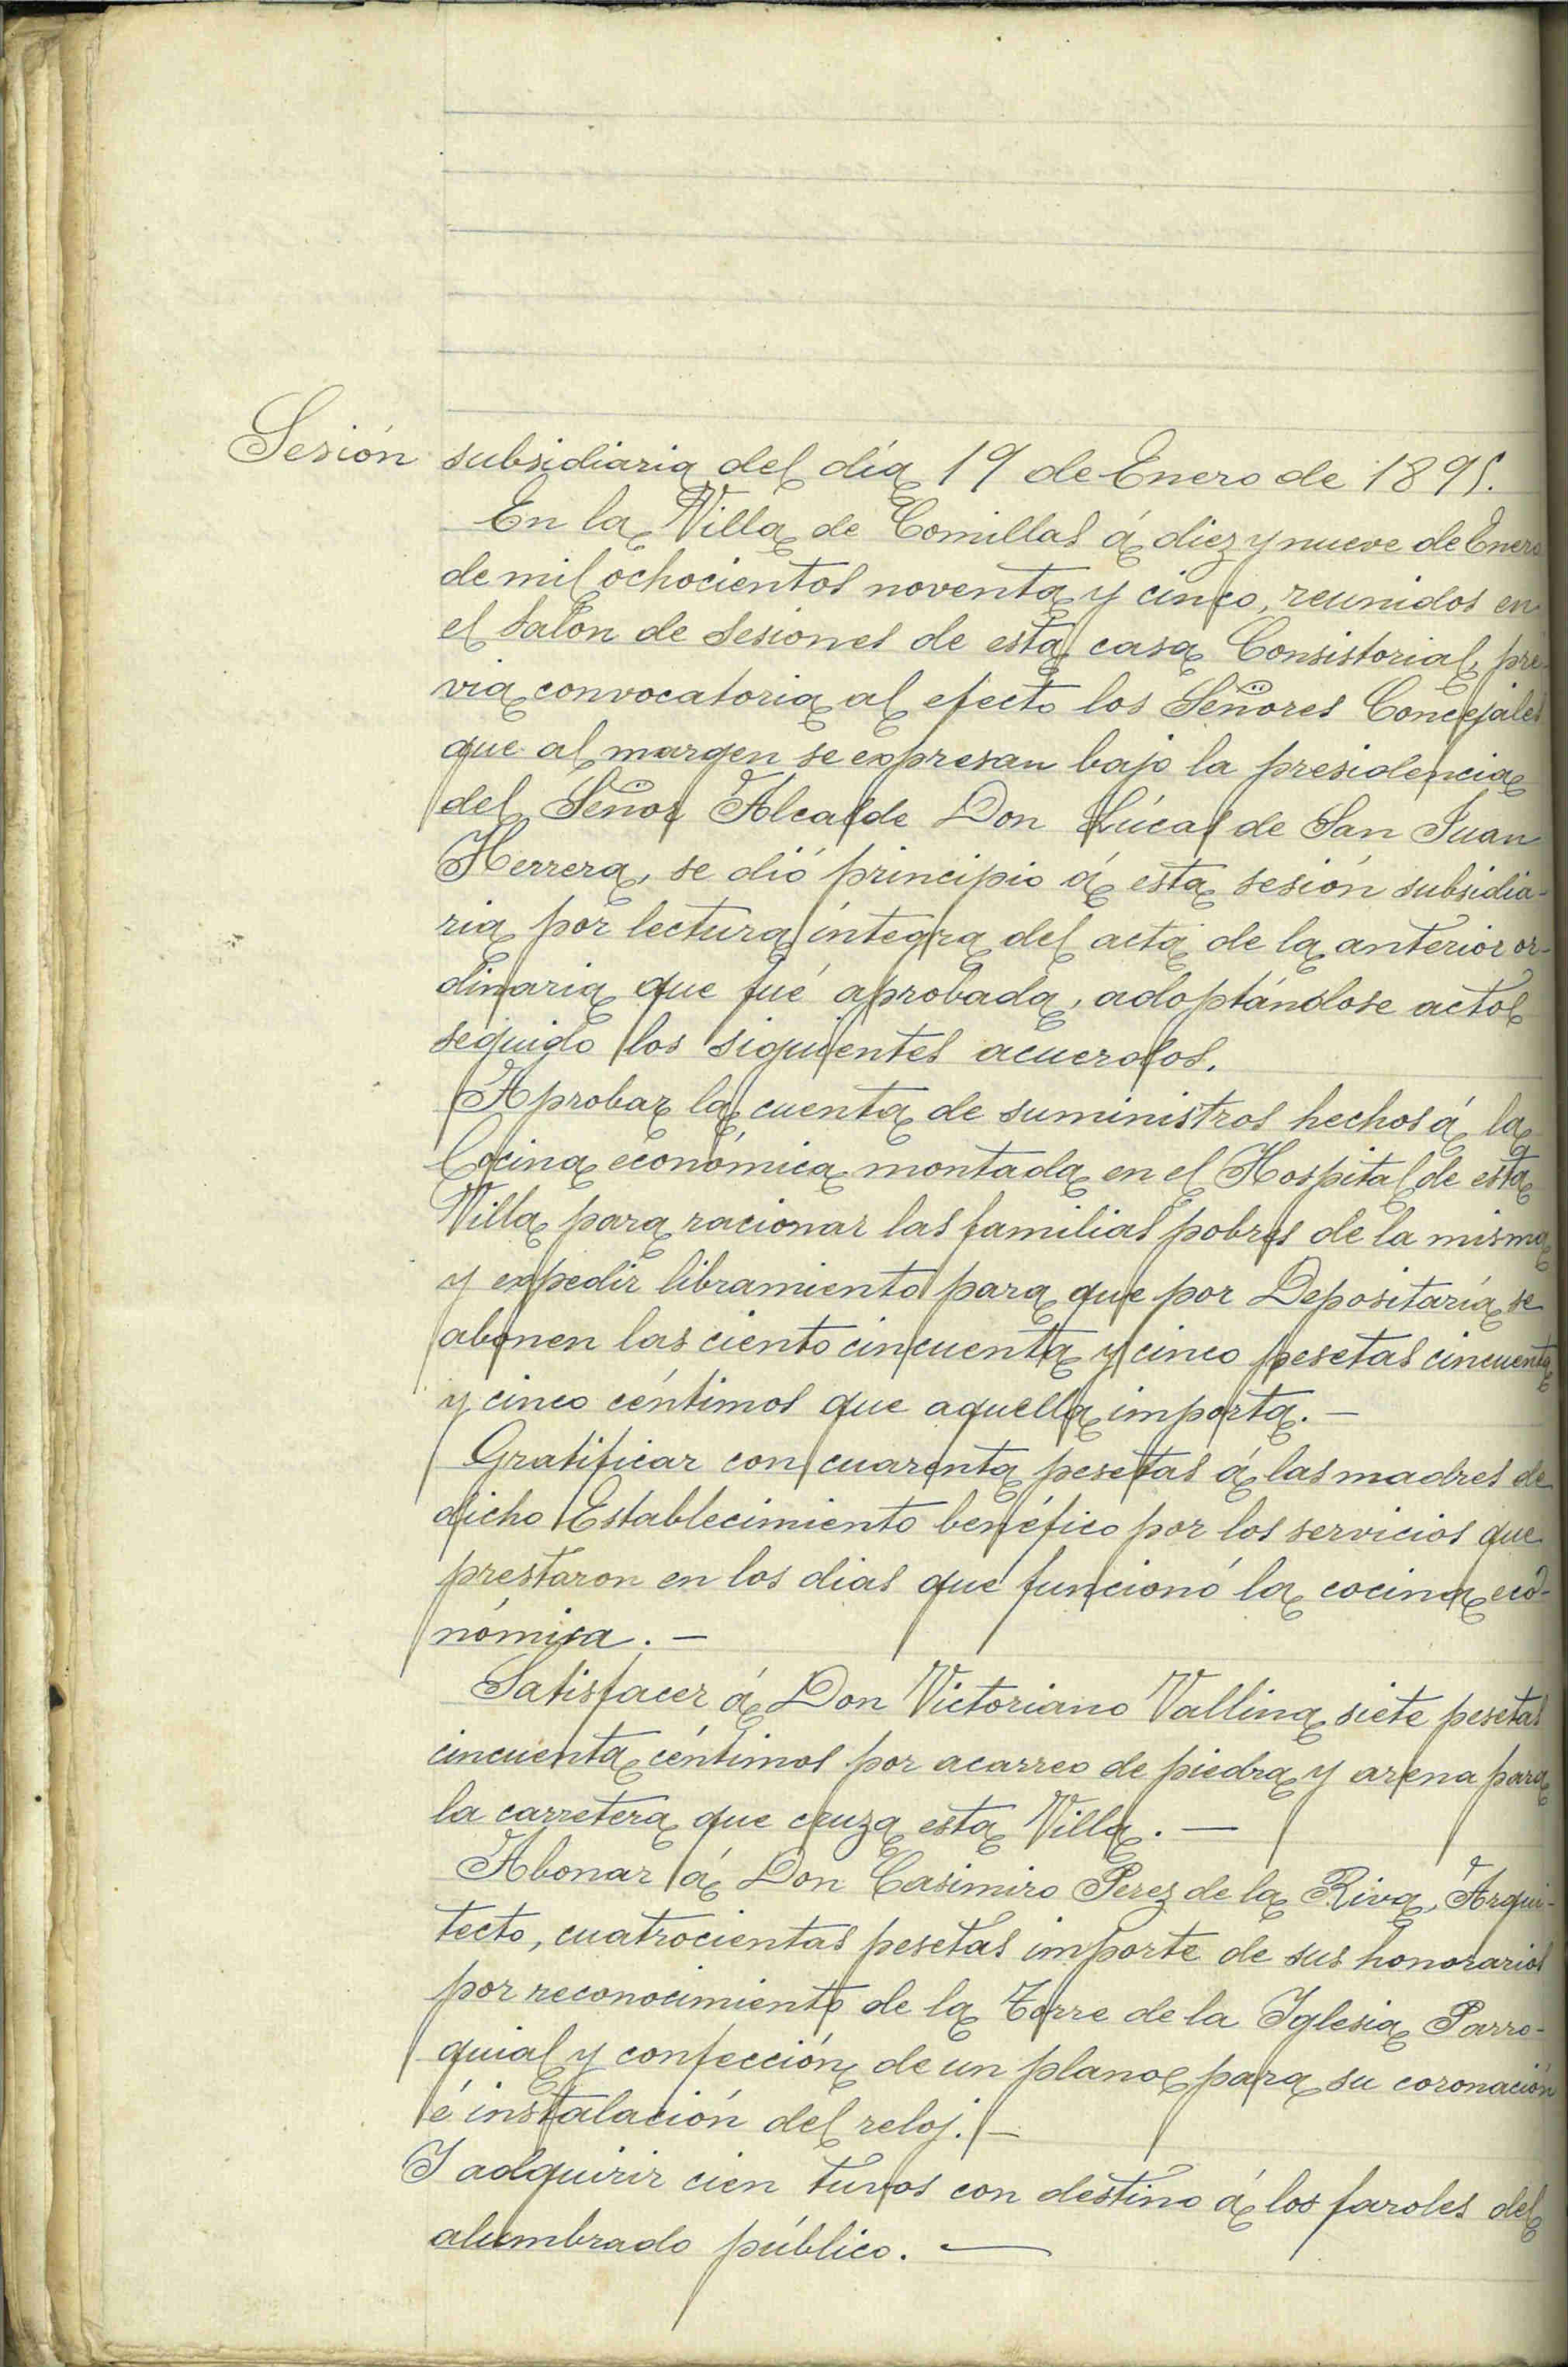 Sesión subsidiaria del día 19 de Enero de 1895.
En la Villa de Comillas á diez y nueve de Enero
de mil ochocientos noventa y cinco, reunidos en
el Salón de Sesiones de esta casa Consistorial, pre-
via convocatoria al efecto los Señores Concejales
que al margen se expresan bajo la presidencia
del Señor Alcalde Don Lúcas de San Juan
Herrera, se dió principio á esta sesión subsidia-
ria por lectura íntegra del acta de la anterior or-
dinaria que fué aprobada, adoptándose acto
seguido los siguientes acuerdos.
Aprobar la cuenta de suministros hechos á la
Cocina económica montada en el Hospital de esta
Villa para racionar las familias pobres de la misma
y expedir libramiento para que por Depositaría se
abonen las ciento cincuenta y cinco pesetas cincuenta
y cinco céntimos que aquella importa. —
Gratificar con cuarenta pesetas á las madres de
dicho Establecimiento benéfico por los servicios que
prestaron en los dias que funcionó la cocina eco-
nómica. —
Satisfacer á Don Victoriano Vallina siete pesetas
cincuenta céntimos por acarreo de piedra y arena para
la carretera que cruza esta Villa. —
Abonar á Don Casimiro Perez de la Riva, Arqui-
tecto, cuatrocientas pesetas importe de sus honorarios
por reconocimiento de la Torre de la Iglesia Parro-
quial y confección de un plano para su coronación
é instalación del reloj. —
Y adquirir cien tuvos con destino á los faroles del
alumbrado público. —